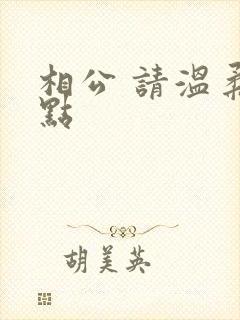 相公 請溫柔
點
胡美英